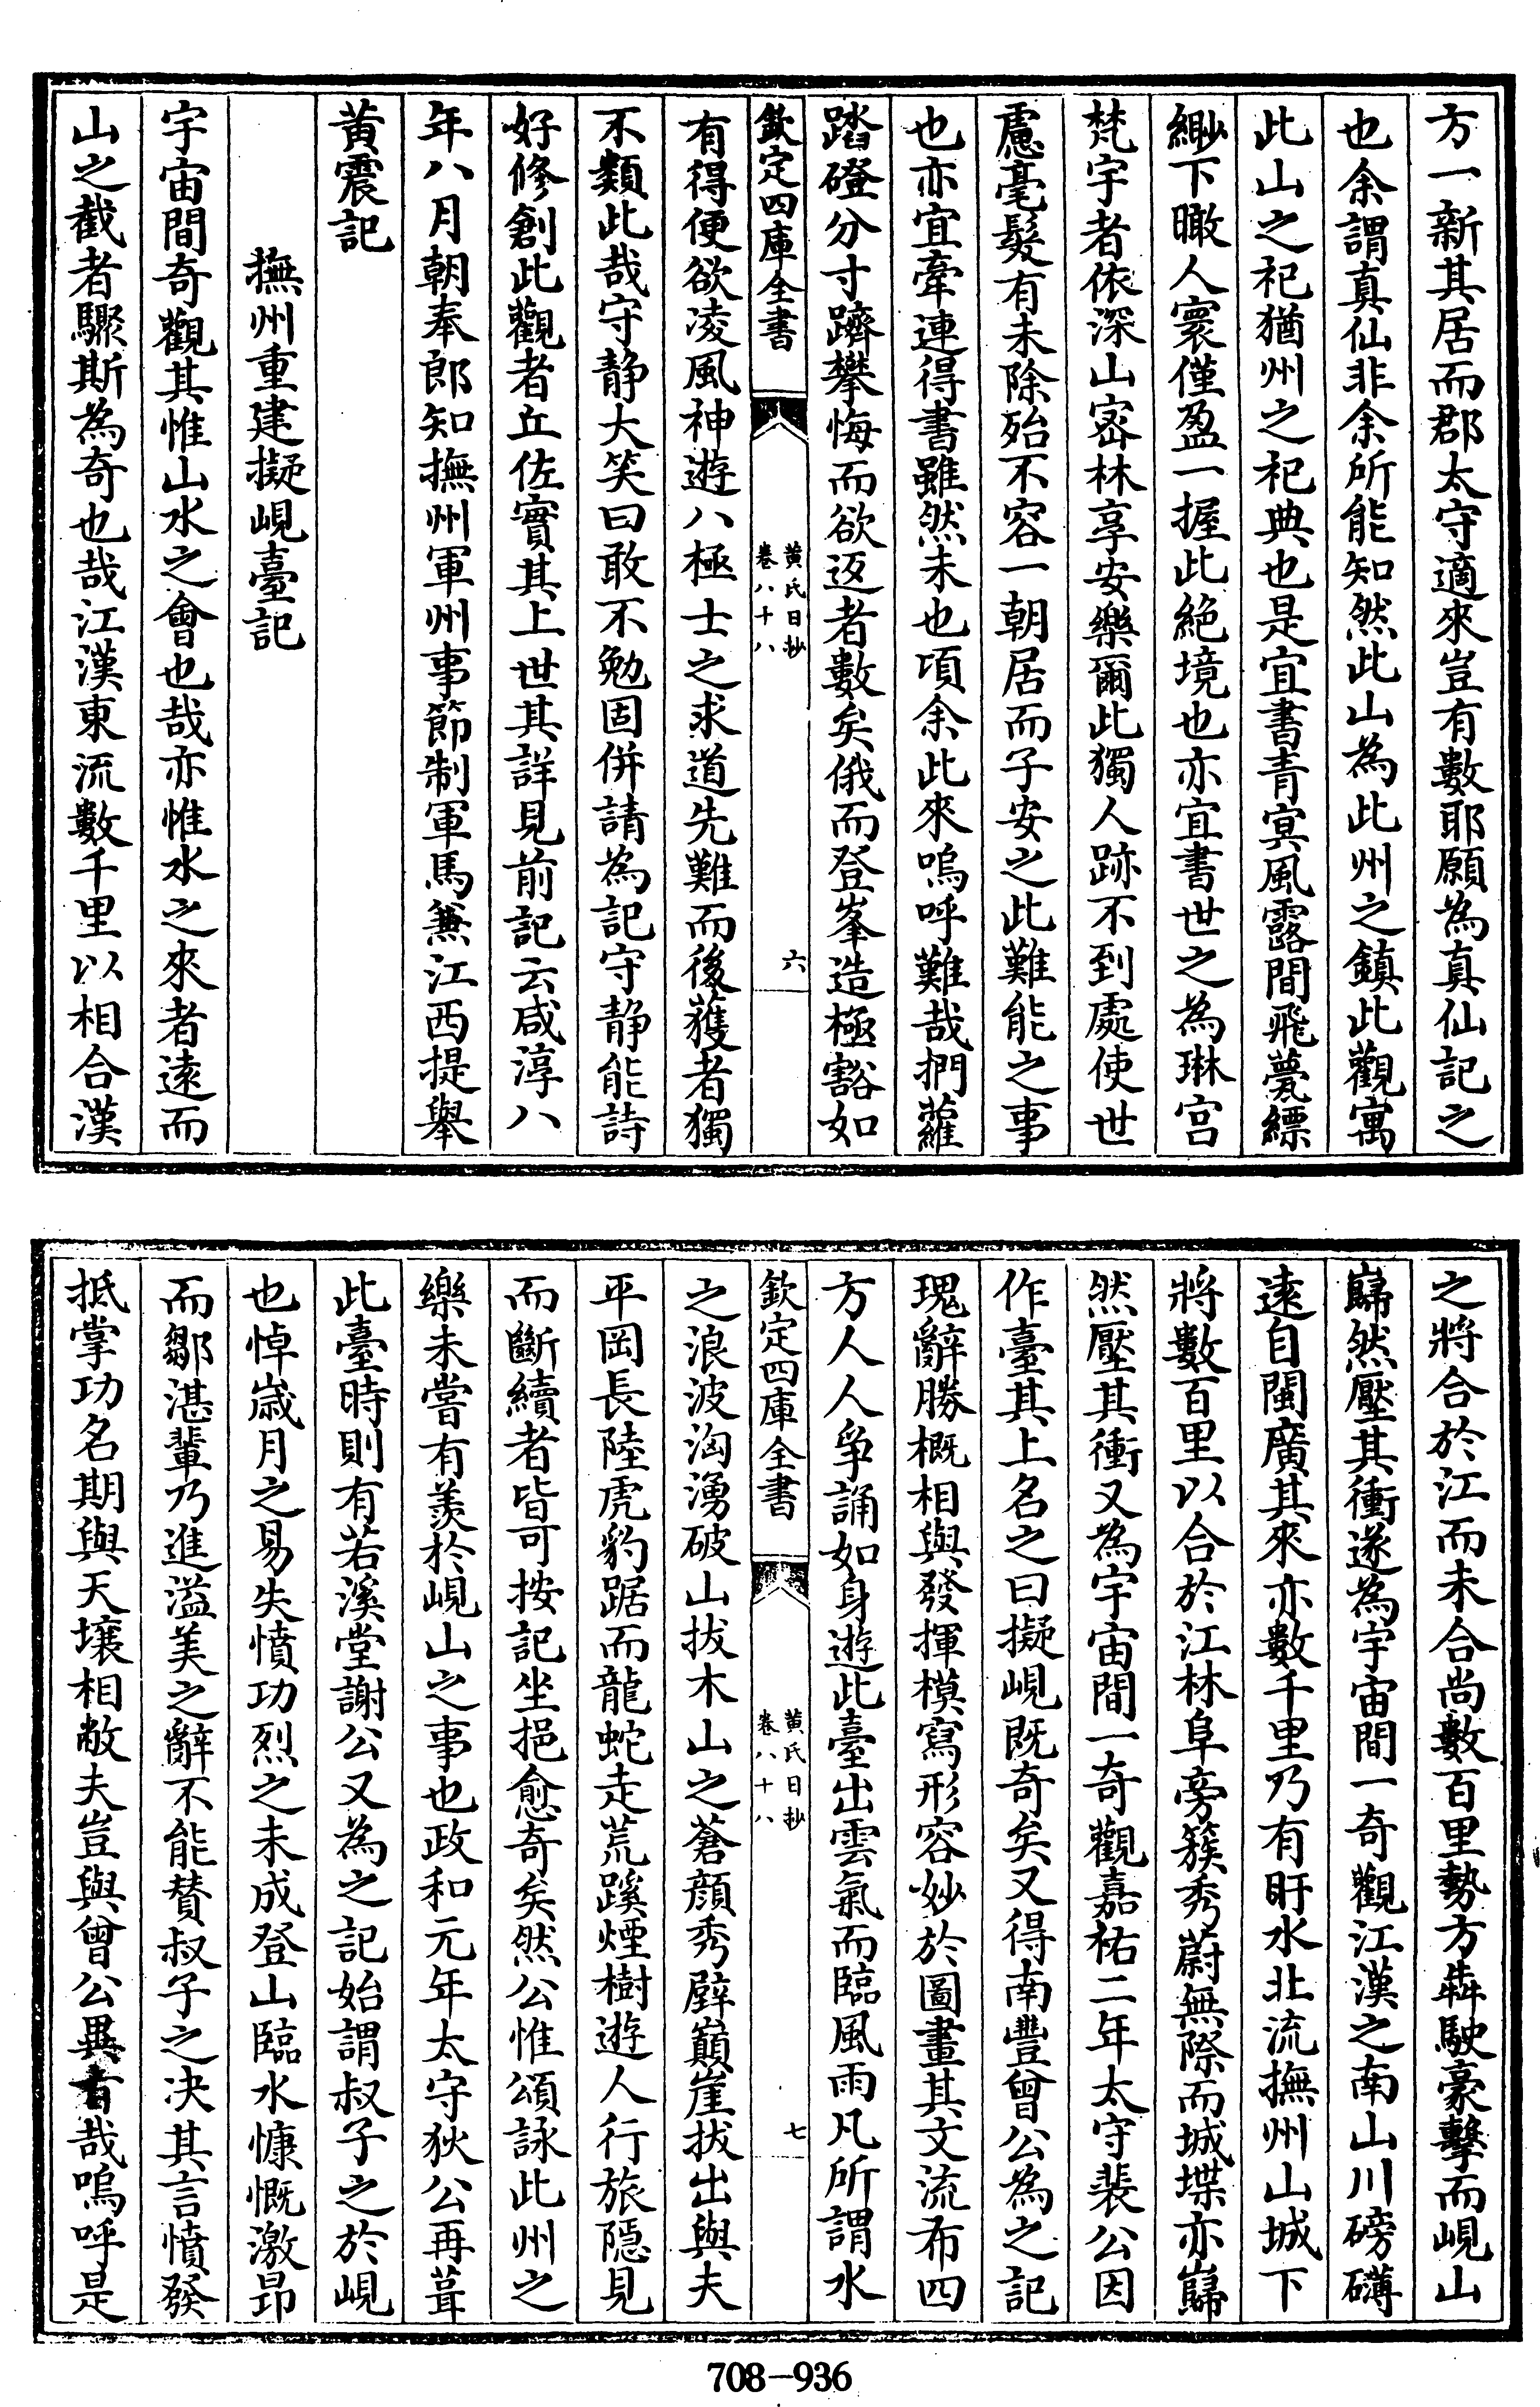 方一新其居而郡太守適來豈有數耶願為真仙記之
也余謂真仙非余所能知然此山為此州之鎮此觀寓
此山之祀猶州之祀典也是宜書青㝠風露間飛甍縹
緲下瞰人寰僅盈一握此絶境也亦宜書世之為琳宫
梵宇者依深山宻林享安樂爾此獨人跡不到處使世
慮毫髮有未除殆不容一朝居而子安之此難能之事
也亦宜牽連得書雖然未也項余此來嗚呼難哉捫蘿
踏磴分寸躋攀悔而欲返者數矣俄而登峯造極豁如
欽定四庫全書
黄氏日抄
卷八十八
六
有得便欲凌風神遊八極士之求道先難而後獲者獨
不類此哉守静大笑曰敢不勉固併請為記守静能詩
好修創此觀者丘佐實其上世其詳見前記云咸淳八
年八月朝奉郎知撫州軍州事節制軍馬兼江西提舉
黄震記
撫州重建擬峴臺記
宇宙間奇觀其惟山水之會也哉亦惟水之來者逺而
山之截者驟斯為奇也哉江漢東流數千里以相合漢
之將合於江而未合尚數百里勢方犇駛豪擊而峴山
巋然壓其衝遂為宇宙間一奇觀江漢之南山川磅礴
逺自閩廣其來亦數千里乃有盱水北流撫州山城下
將數百里以合於江林阜旁簇秀蔚無際而城堞亦巋
然壓其衝又為宇宙間一奇觀嘉祐二年太守裴公因
作臺其上名之曰擬峴既奇矣又得南豐曾公為之記
瑰辭勝概相與發揮模寫形容妙於圖畫其文流布四
方人人爭誦如身遊此臺出雲氣而臨風雨凡所謂水
欽定四庫全書
黄氏日抄
卷八十八
七
之浪波洶湧破山拔木山之蒼顔秀壁巔崖拔出與夫
平岡長陸虎豹踞而龍蛇走荒蹊煙樹遊人行旅隱見
而斷續者皆可按記坐挹愈奇矣然公惟頌詠此州之
樂未嘗有羨於峴山之事也政和元年太守狄公再葺
此臺時則有若溪堂謝公又為之記始謂叔子之於峴
也悼嵗月之易失憤功烈之未成登山臨水慷慨激昂
而鄒湛輩乃進溢美之辭不能賛叔子之决其言憤發
抵掌功名期與天壤相敝夫豈與曾公異哉嗚呼是
708-936